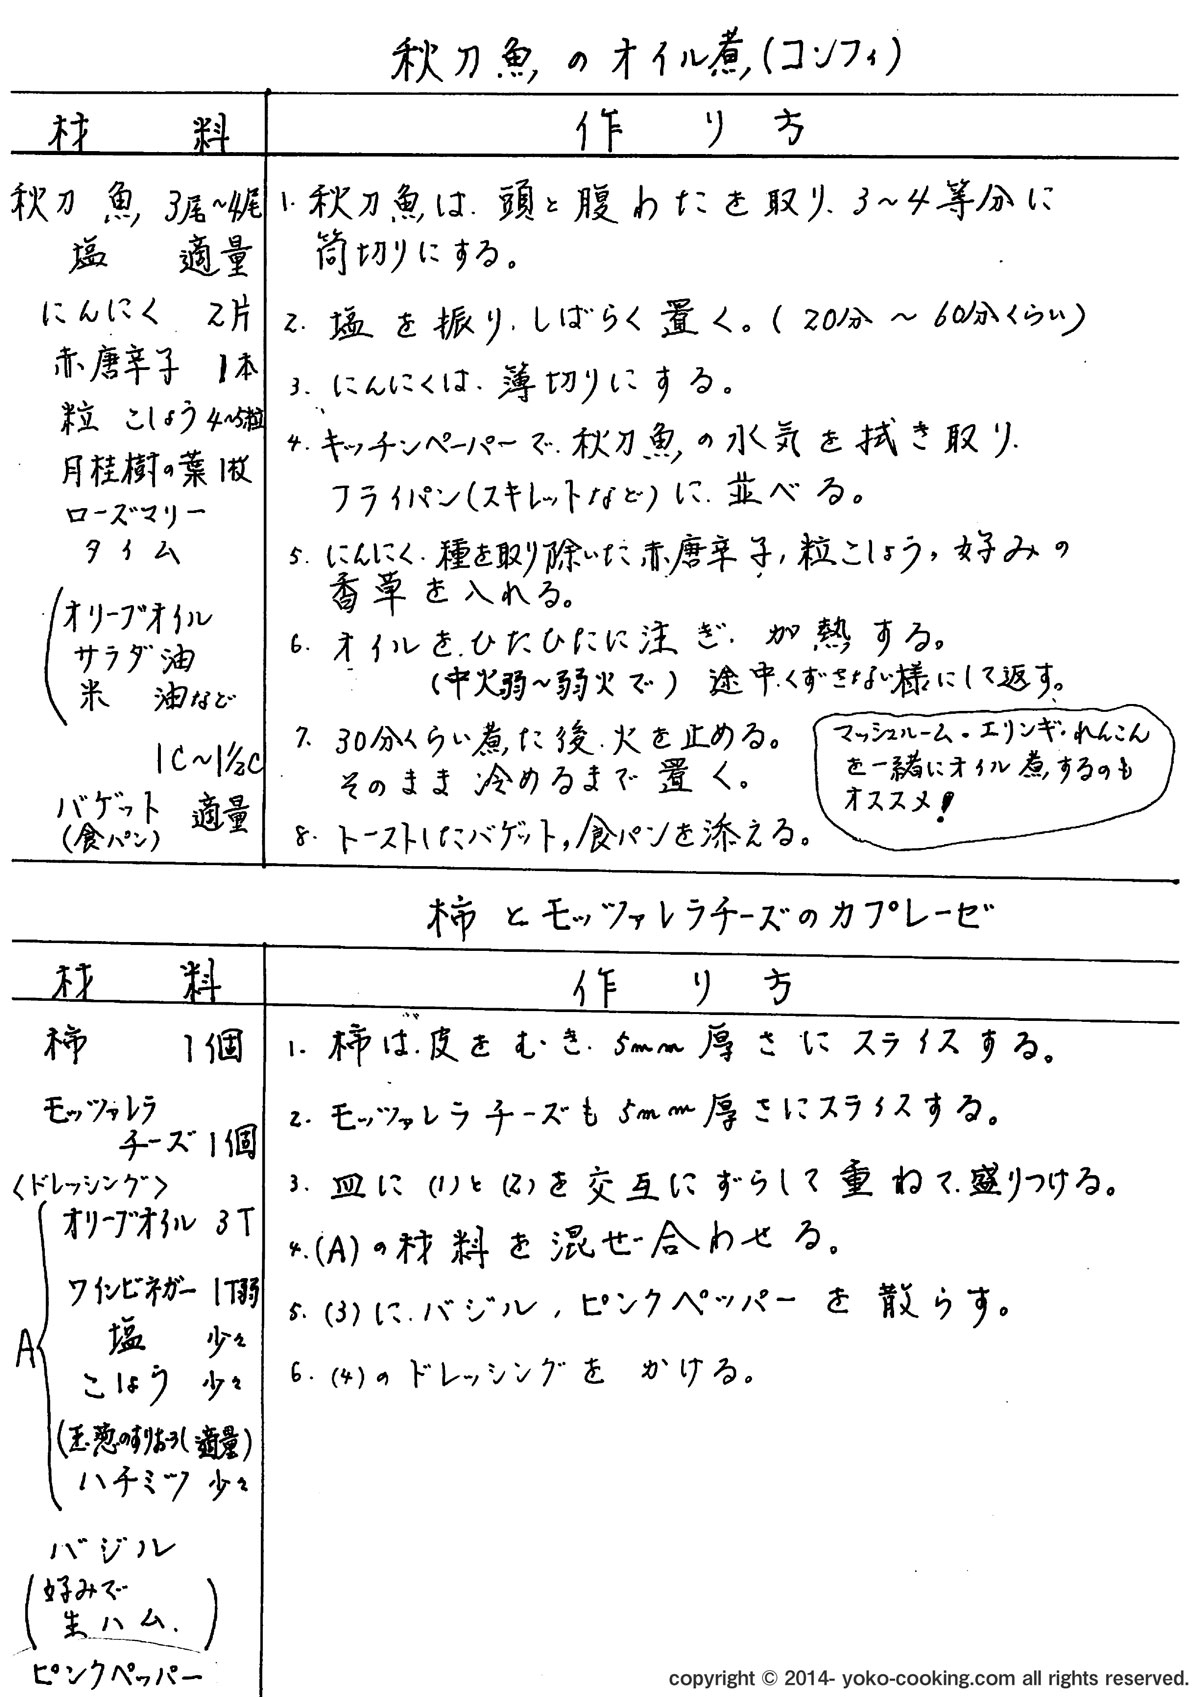 秋刀魚のオイル煮(コンフィ)
材 料
作 り 方
秋刀魚 3尾~4尾
塩 適量
にんにく 2片
赤唐辛子 1本
粒こしょう 4~5粒
月桂樹の葉 1枚
ローズマリー
タイム
(オリーブオイル
サラダ油
米 油など
1C~1½C
バゲット 適量
(食パン)
1. 秋刀魚は、頭と腹わたを取り、3~4等分に
筒切りにする。
2. 塩を振り、しばらく置く。(20分~60分くらい)
3. にんにくは、薄切りにする。
4. キッチンペーパーで、秋刀魚の水気を拭き取り、
フライパン(スキレットなど)に、並べる。
5. にんにく、種を取り除いた赤唐辛子、粒こしょう、好みの
香草を入れる。
6. オイルをひたひたに注ぎ、加熱する。
(中火弱~弱火で) 途中、くずさない様にして返す。
7. 30分くらい煮た後、火を止める。
そのまま冷めるまで置く。
マッシュルーム・エリンギ・れんこん
を一緒にオイル煮するのも
オススメ!
8. トーストしたバゲット、食パンを添える。
柿とモッツァレラチーズのカプレーゼ
材 料
作 り 方
柿 1個
モッツァレラ
チーズ 1個
<ドレッシング>
オリーブオイル 3T
ワインビネガー 1T弱
A
塩 少々
こしょう 少々
(玉葱のすりおろし 適量)
ハチミツ 少々
バジル
(好みで
生ハム、)
ピンクペッパー
1. 柿は、皮をむき、5mm厚さにスライスする。
2. モッツァレラチーズも5mm厚さにスライスする。
3. 皿に(1)と(2)を交互にずらして重ねて、盛りつける。
4. (A)の材料を混ぜ合わせる。
5. (3)に、バジル、ピンクペッパーを散らす。
6. (4)のドレッシングをかける。
copyright © 2014- yoko-cooking.com all rights reserved.